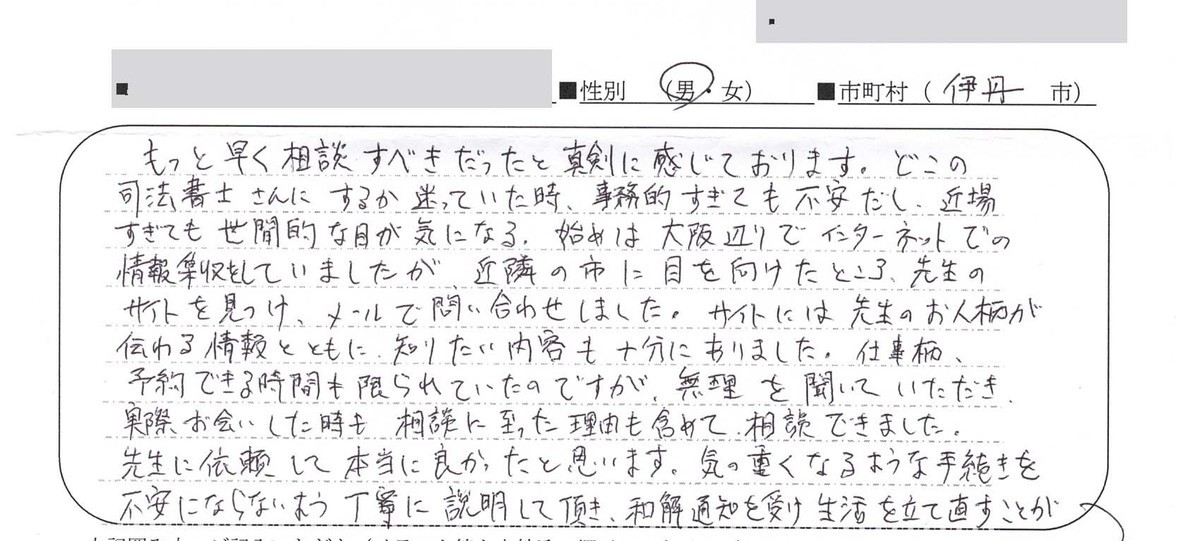 ■
■ ■性別 (男・女) ■市町村 ( 伊丹 市)
もっと早く相談すべきだったと真剣に感じております。どこの
司法書士さんにするか迷っていた時、事務的すぎても不安だし、近場
すぎても世間的な目が気になる。始めは大阪辺りでインターネットでの
情報集収をしていましたが、近隣の市に目を向けたところ、先生の
サイトを見つけ、メールで問い合わせしました。サイトには先生のお人柄が
伝わる情報とともに、知りたい内容も十分にありました。仕事柄、
予約できる時間も限られていたのですが、無理を聞いていただき、
実際お会いした時も相談に至った理由も含めて、相談できました。
先生に依頼して本当に良かったと思います。気の重くなるような手続きを
不安にならないよう丁寧に説明して頂き、和解通知を受け生活を立て直すことが